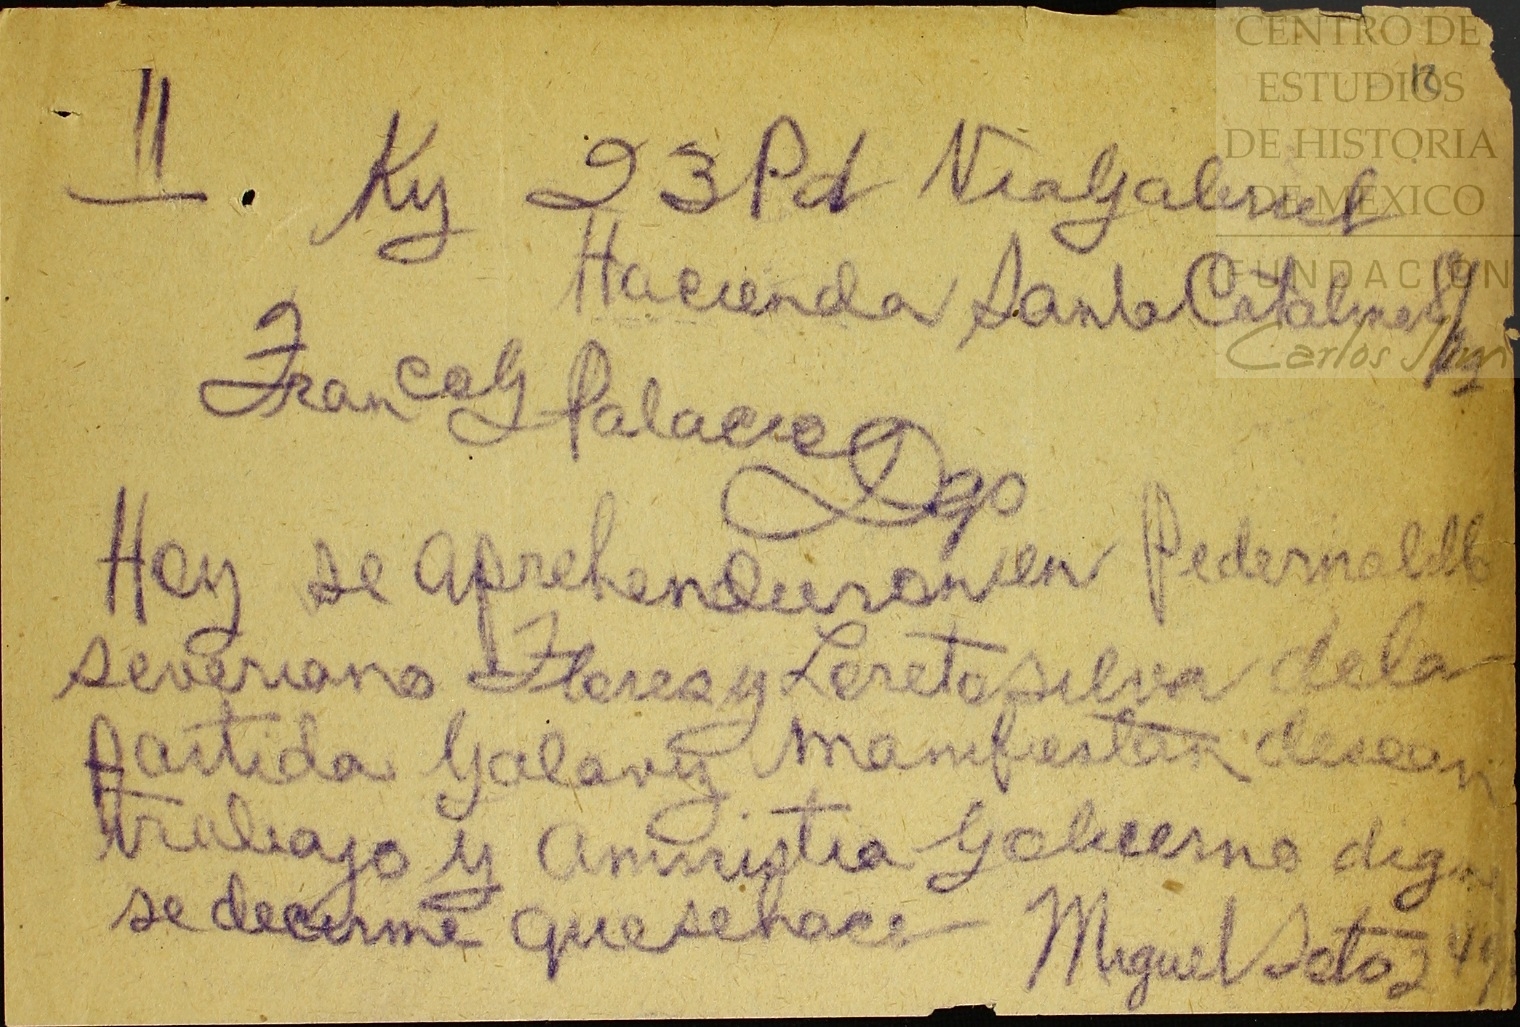 CENTRO DE
ESTUDIOS
DE HISTORIA
DE MÉXICO
FUNDACIÓN
Carlos Slim
13
11. Ky 23 Pd Via Gabriel
Hacienda Santa Catalina 8/
Franco G Palacio Dgo
Hoy se aprehendieron en Pedernalillo
severiano Flores y Loreto silva de la
partida Galaviz manifiestan desean
trabajo y amnistia Gobierno digne
se decirme que se hace Miguel Soto